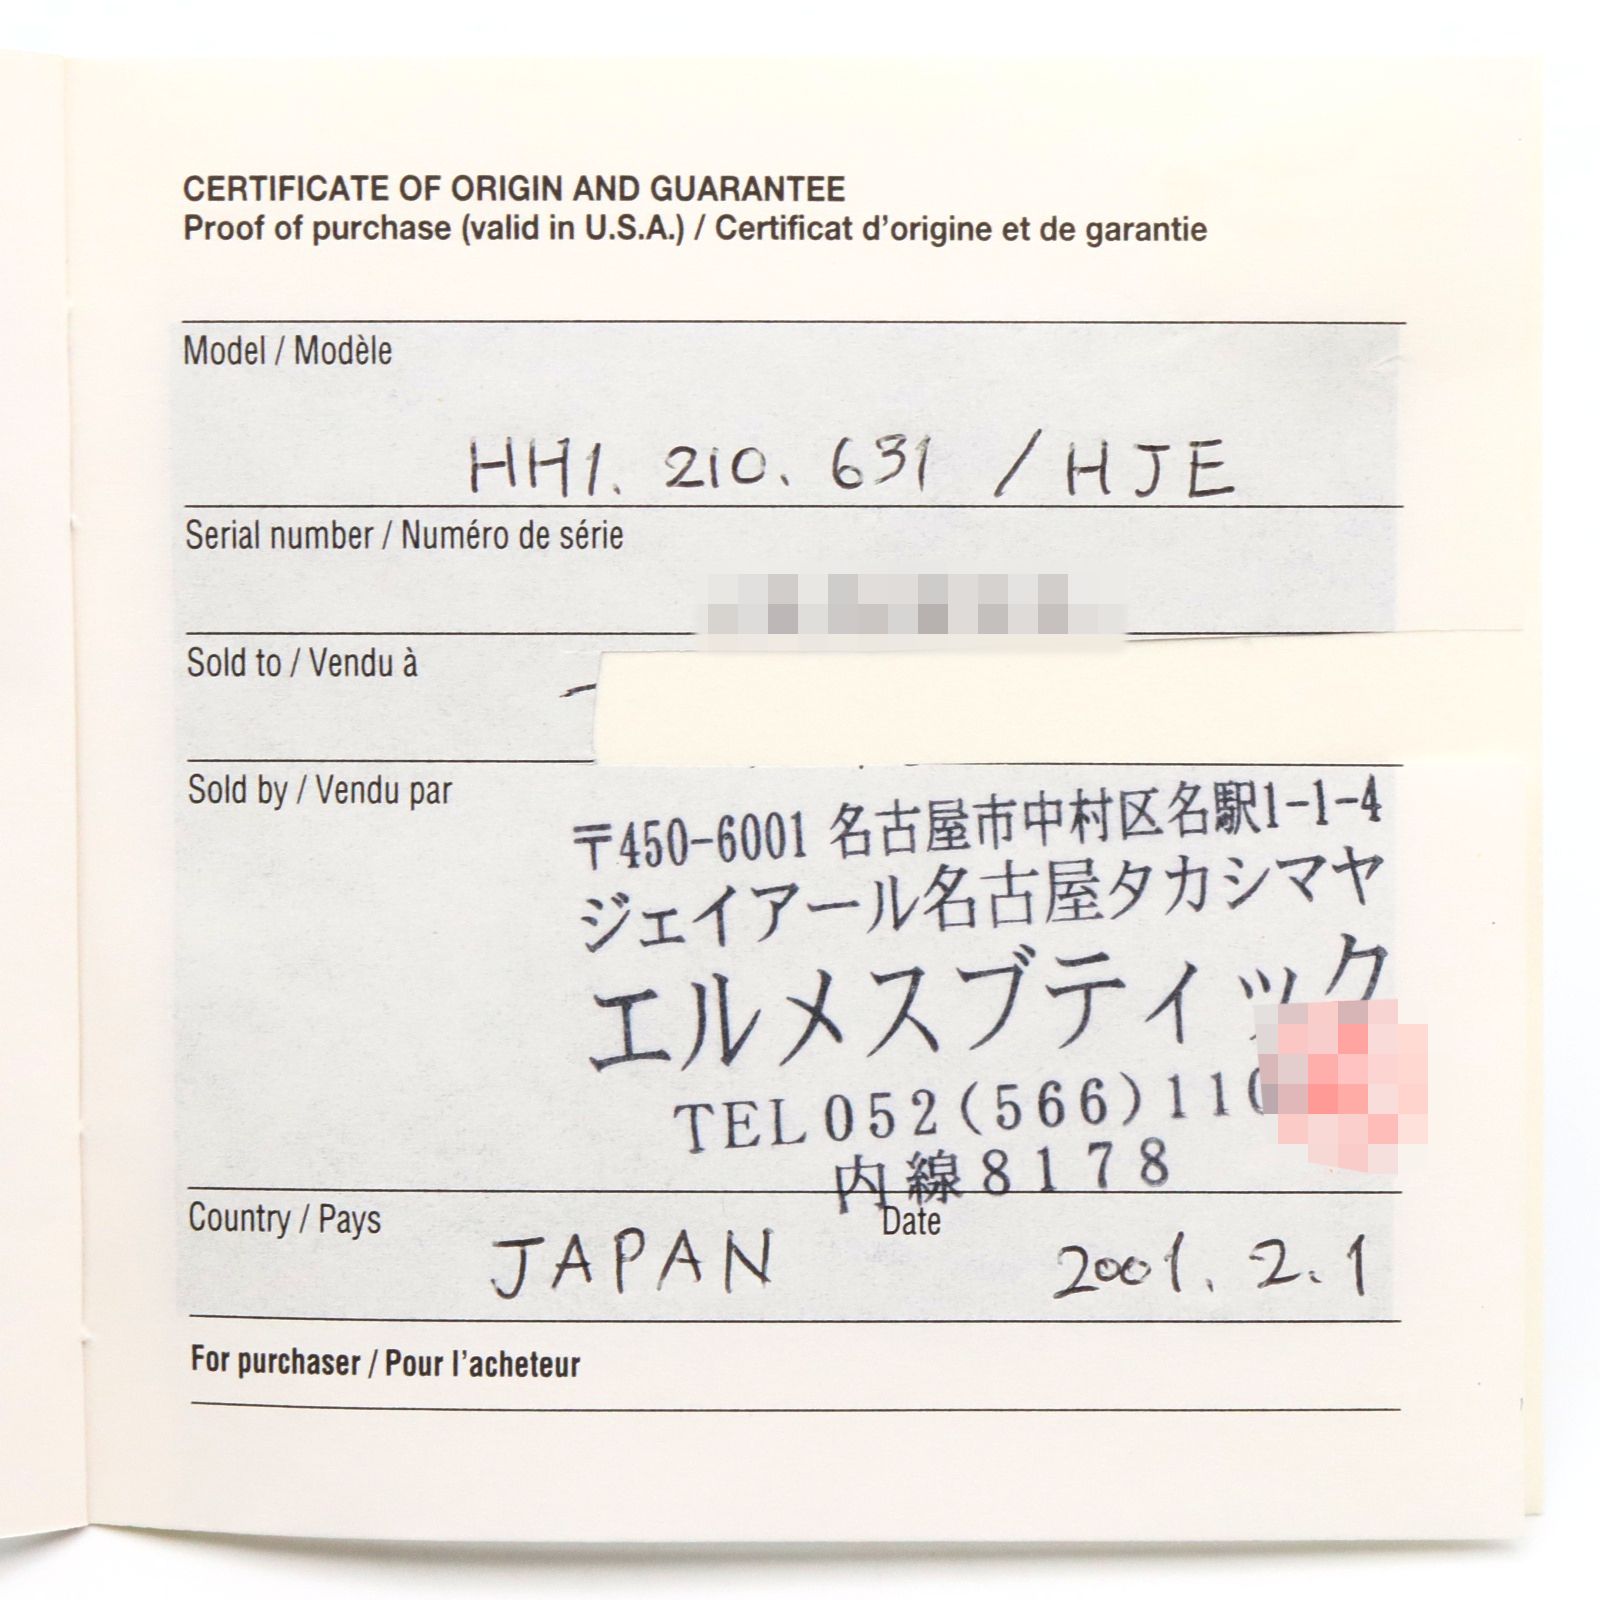 CERTIFICATE OF ORIGIN AND GUARANTEE
Proof of purchase (valid in U.S.A.) / Certificat d'origine et de garantie
Model / Modèle
HH1. 210. 631 / HJE
Serial number / Numéro de série
Sold to / Vendu à
Sold by / Vendu par
〒450-6001 名古屋市中村区名駅1-1-4
ジェイアール名古屋タカシマヤ
エルメスブティック
TEL052(566)110
内線8178
Country / Pays
JAPAN
Date
2001. 2. 1
For purchaser / Pour l'acheteur